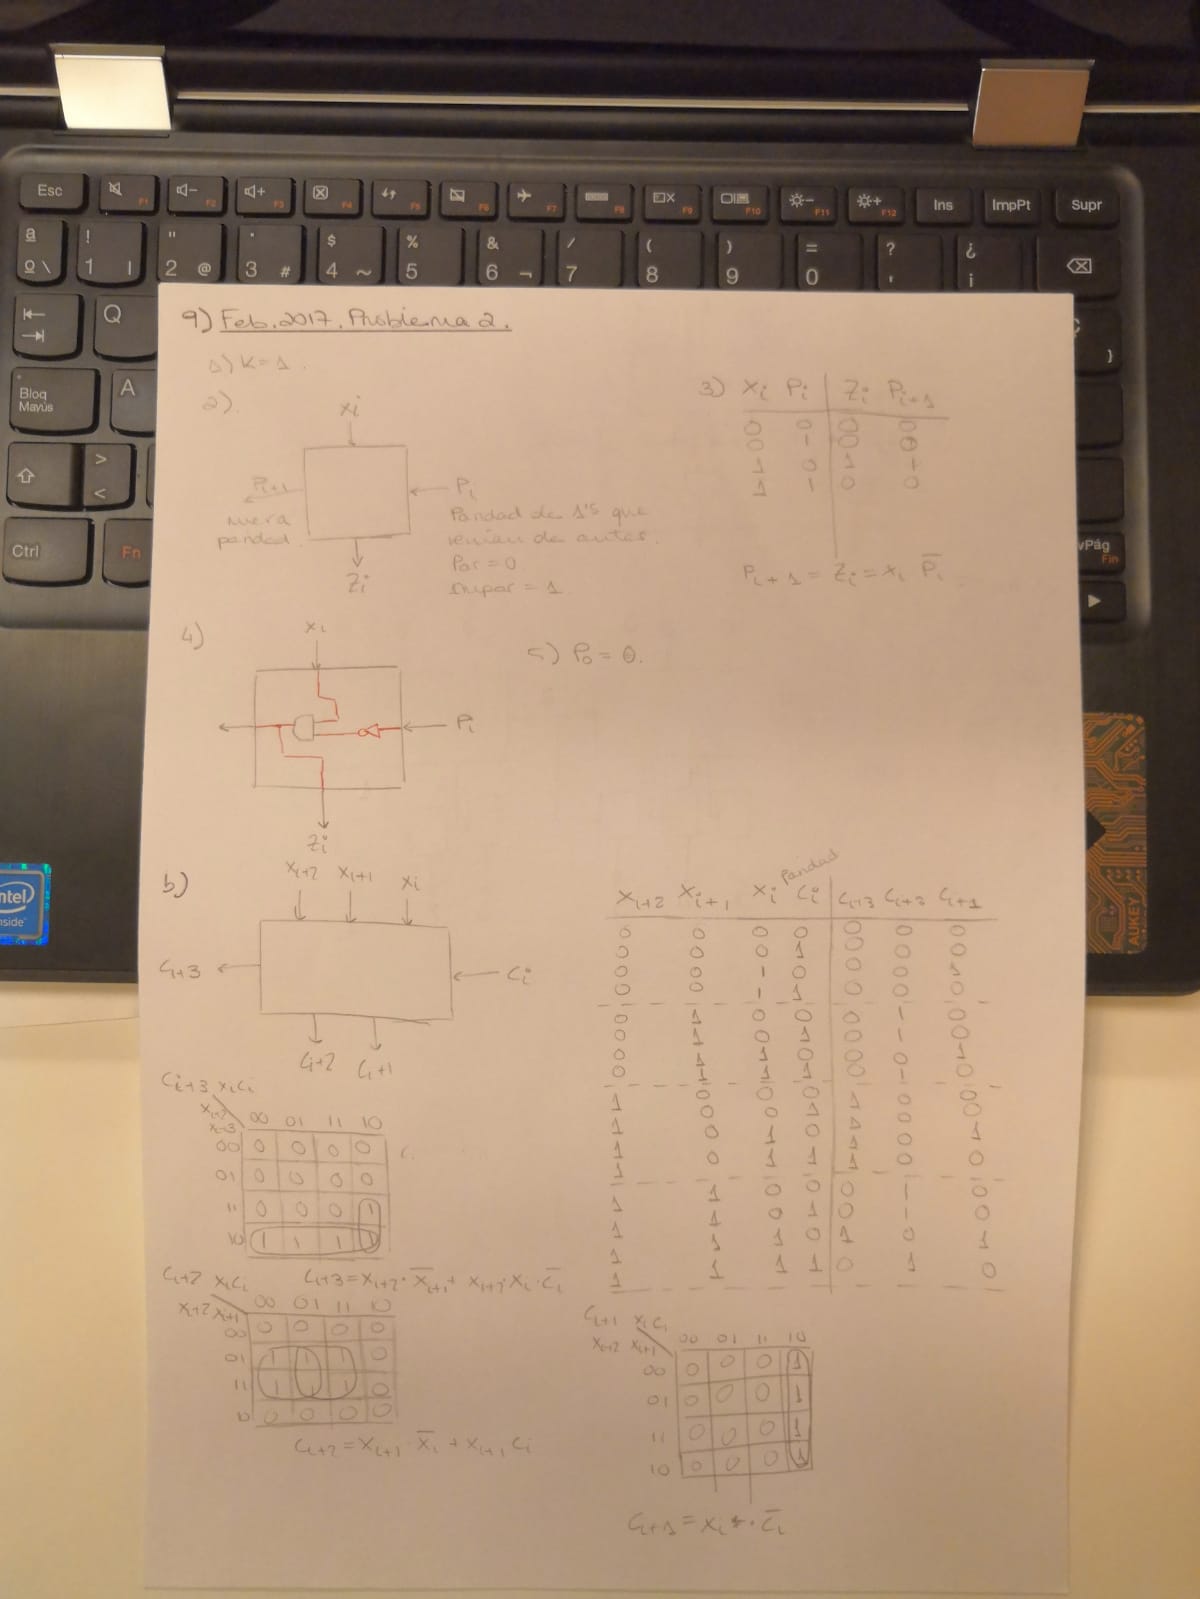 Esc F1 F2 F3 F4 F5 F6 F7 F8 F9 F10 F11 F12 Ins ImpPt Supr
a ! " · $ % & / ( ) = ? ¿
º \ 1 | 2 @ 3 # 4 ~ 5 6 ¬ 7 8 9 0 ' ¡
Q
Bloq
Mayús
A
>
<
Ctrl Fn
vPág
Fin
intel
inside
AUKEY
9) Feb. 2017. Problema 2.
1) K=1.
2).
xi
Pi+1
nueva
paridad
Pi
Paridad de 1's que
venian de antes.
Par = 0
Impar = 1
Zi
3) Xi Pi Zi Pi+1
0 0 0 0
0 1 0 0
1 0 1 1
1 1 0 0
Pi+1 = Zi = xi P̅i
4)
xi
Pi
Zi
5) P0 = 0.
b)
Xi+2 Xi+1 Xi
Ci+3 Ci
Ci+2 Ci+1
Paridad
Xi+2 Xi+1 Xi Ci Ci+3 Ci+2 Ci+1
0 0 0 0 0 0 0
0 0 0 1 0 0 0
0 0 1 0 0 0 1
0 0 1 1 0 0 0
0 1 0 0 0 1 0
0 1 0 1 0 1 0
0 1 1 0 0 0 1
0 1 1 1 0 1 0
1 0 0 0 1 0 0
1 0 0 1 1 0 0
1 0 1 0 1 0 1
1 0 1 1 1 0 0
1 1 0 0 0 1 0
1 1 0 1 0 1 0
1 1 1 0 1 0 1
1 1 1 1 0 1 0
Ci+3 XiCi
Xi+2
Xi+3
00 01 11 10
00 0 0 0 0
01 0 0 0 0
11 0 0 0 1
10 1 1 1 1
Ci+3 = Xi+2 · X̅i+1 + Xi+2 · Xi · C̅i
Ci+2 XiCi
Xi+2 Xi+1
00 01 11 10
00 0 0 0 0
01 1 1 1 0
11 1 1 1 0
10 0 0 0 0
Ci+2 = Xi+1 · X̅i + Xi+1 Ci
Ci+1 XiCi
Xi+2 Xi+1
00 01 11 10
00 0 0 0 1
01 0 0 0 1
11 0 0 0 1
10 0 0 0 1
Ci+1 = Xi · C̅i